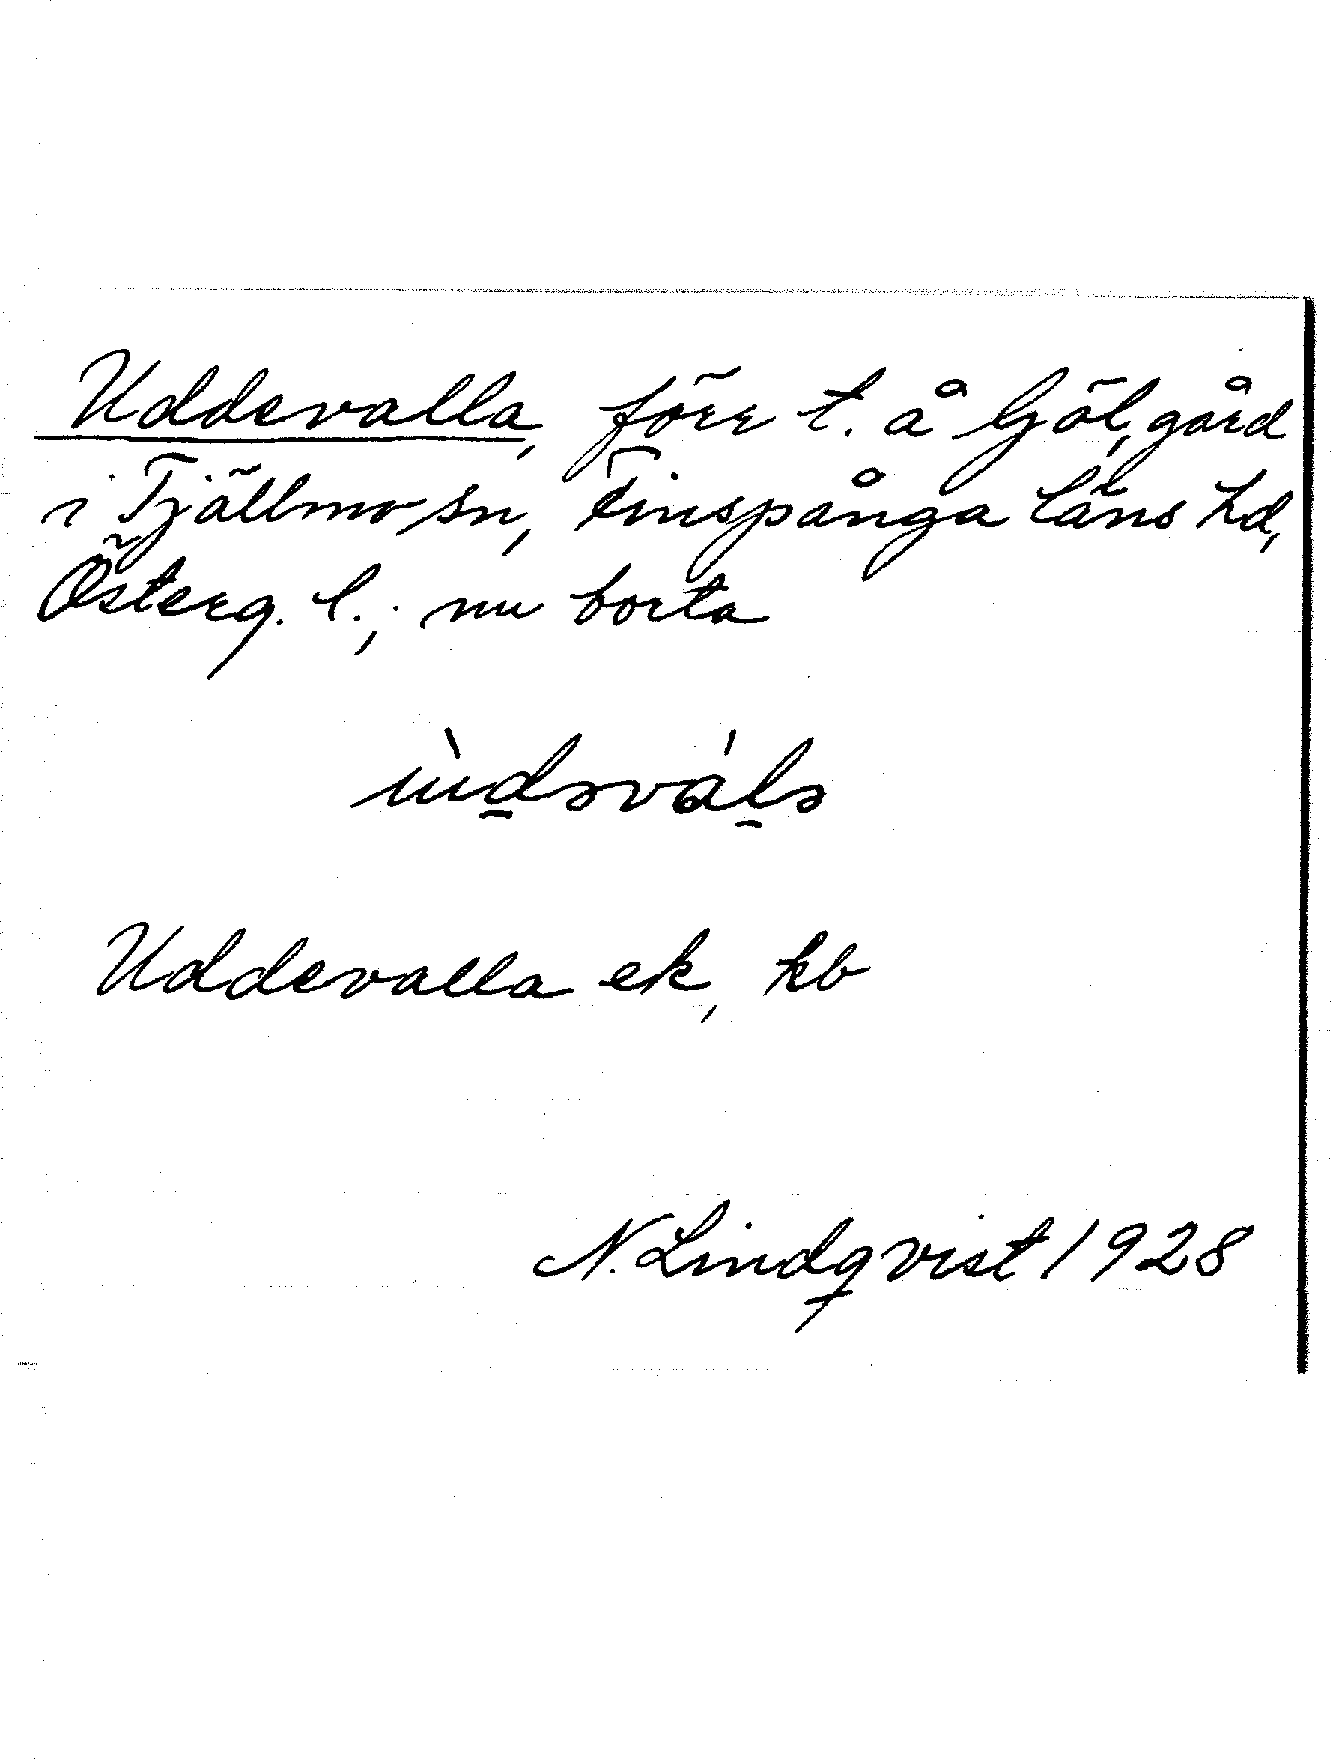 Uddevalla, förr t. å Göl, gård
i Tjällmo sn, Finspånga läns hd,
Österg. l.; nu borta
ùd̲əvál̲ə
Uddevalla ek, kb
N. Lindqvist 1928